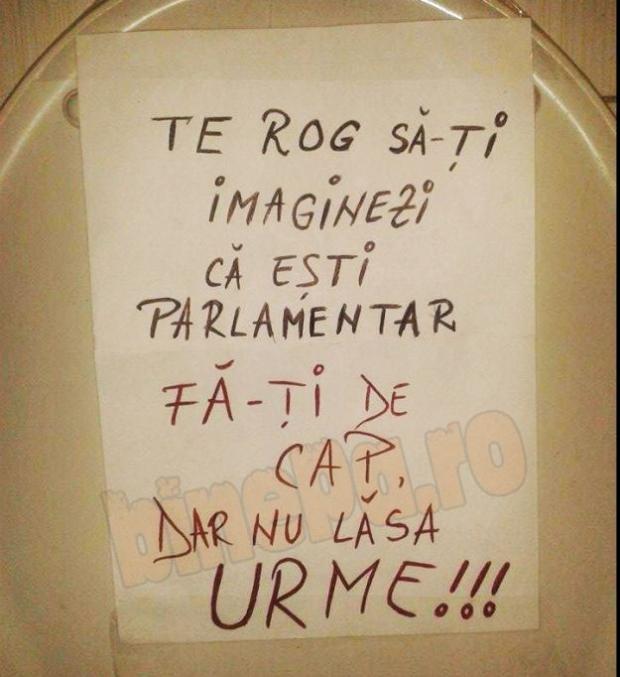 TE ROG SĂ-ȚI
IMAGINEZI
CĂ EȘTI
PARLAMENTAR
FĂ-ȚI DE
CAP,
DAR NU LĂSA
URME!!!
bineba.ro